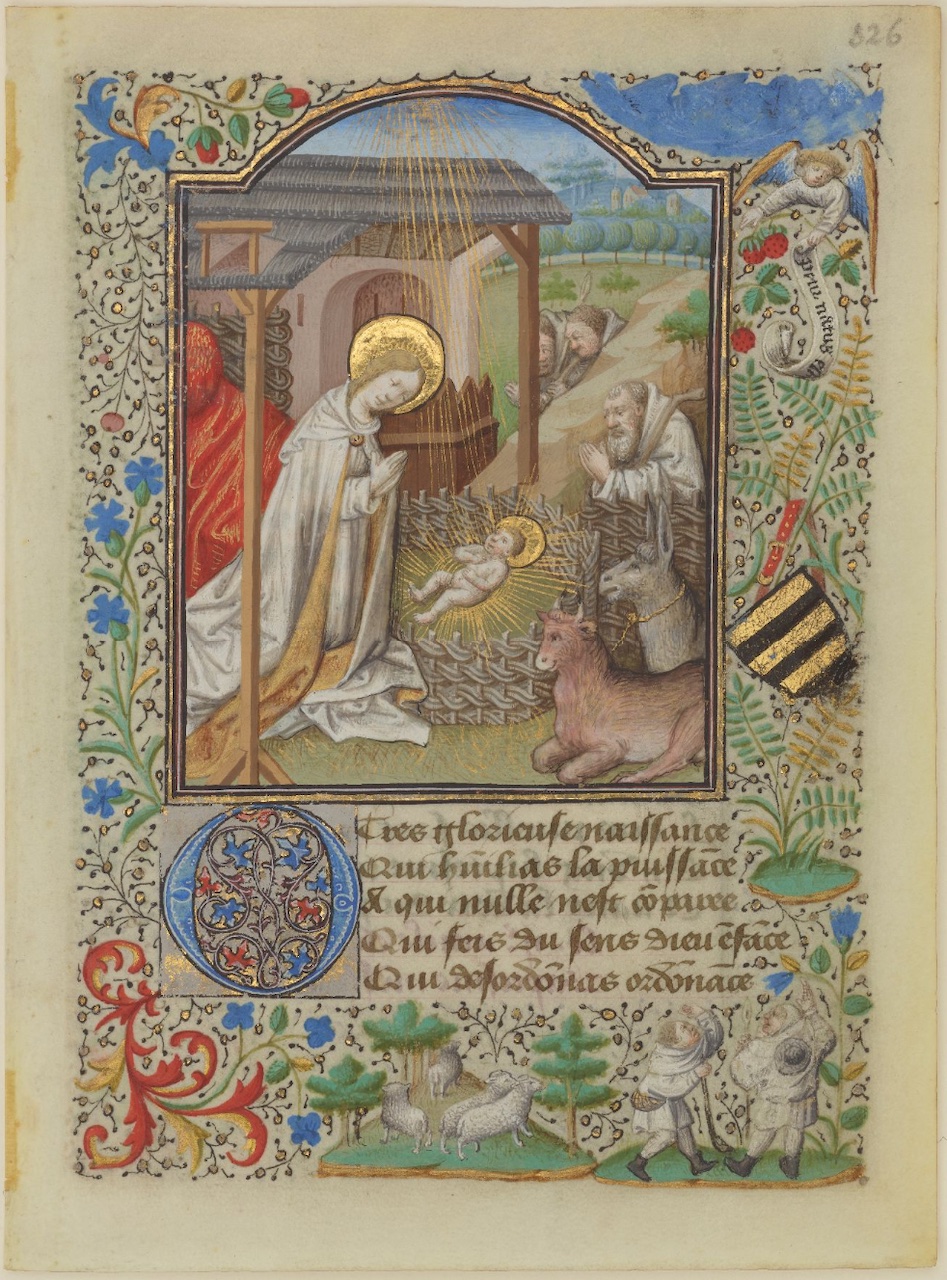 326
puer natus est
O Tres glorieuse naissance
Qui hũilias la puissãce
A qui nulle nest cõparee
Qui feis du sens dieu ẽfãce
Qui desordõnas ordõnãce